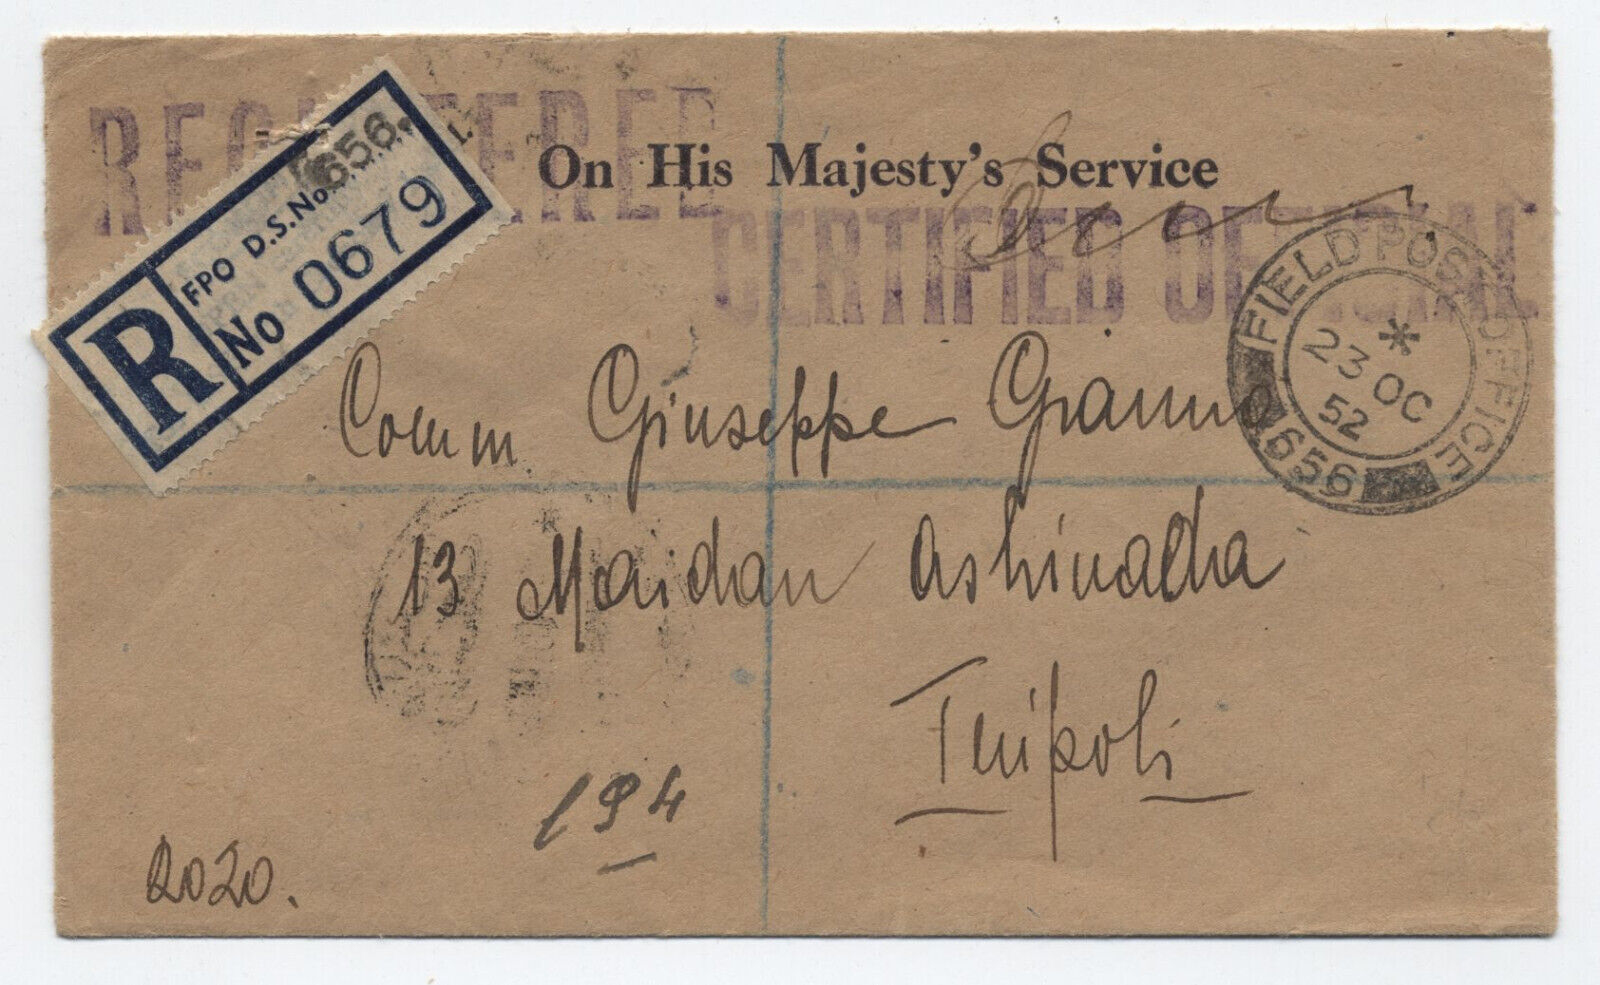 REGISTERED
On His Majesty's Service
CERTIFIED OFFICIAL
R
FPO D.S.No 656.
No 0679
FIELD POST OFFICE
23 OC
52
656
Comm. Giuseppe
13 Maidan
Tripoli
194
2020.